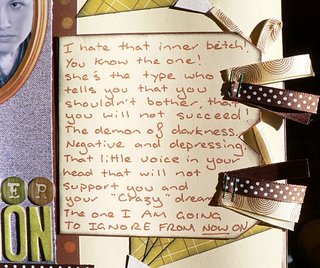 I hate that inner betch!
You know the one!
She's the type who
tells you that you
shouldn't bother, that
you will not succeed!
The demon of darkness.
Negative and depressing.
That little voice in your
head that will not
support you and
your "Crazy" dream
The one I AM GOING
TO IGNORE FROM NOW ON
ER
ON